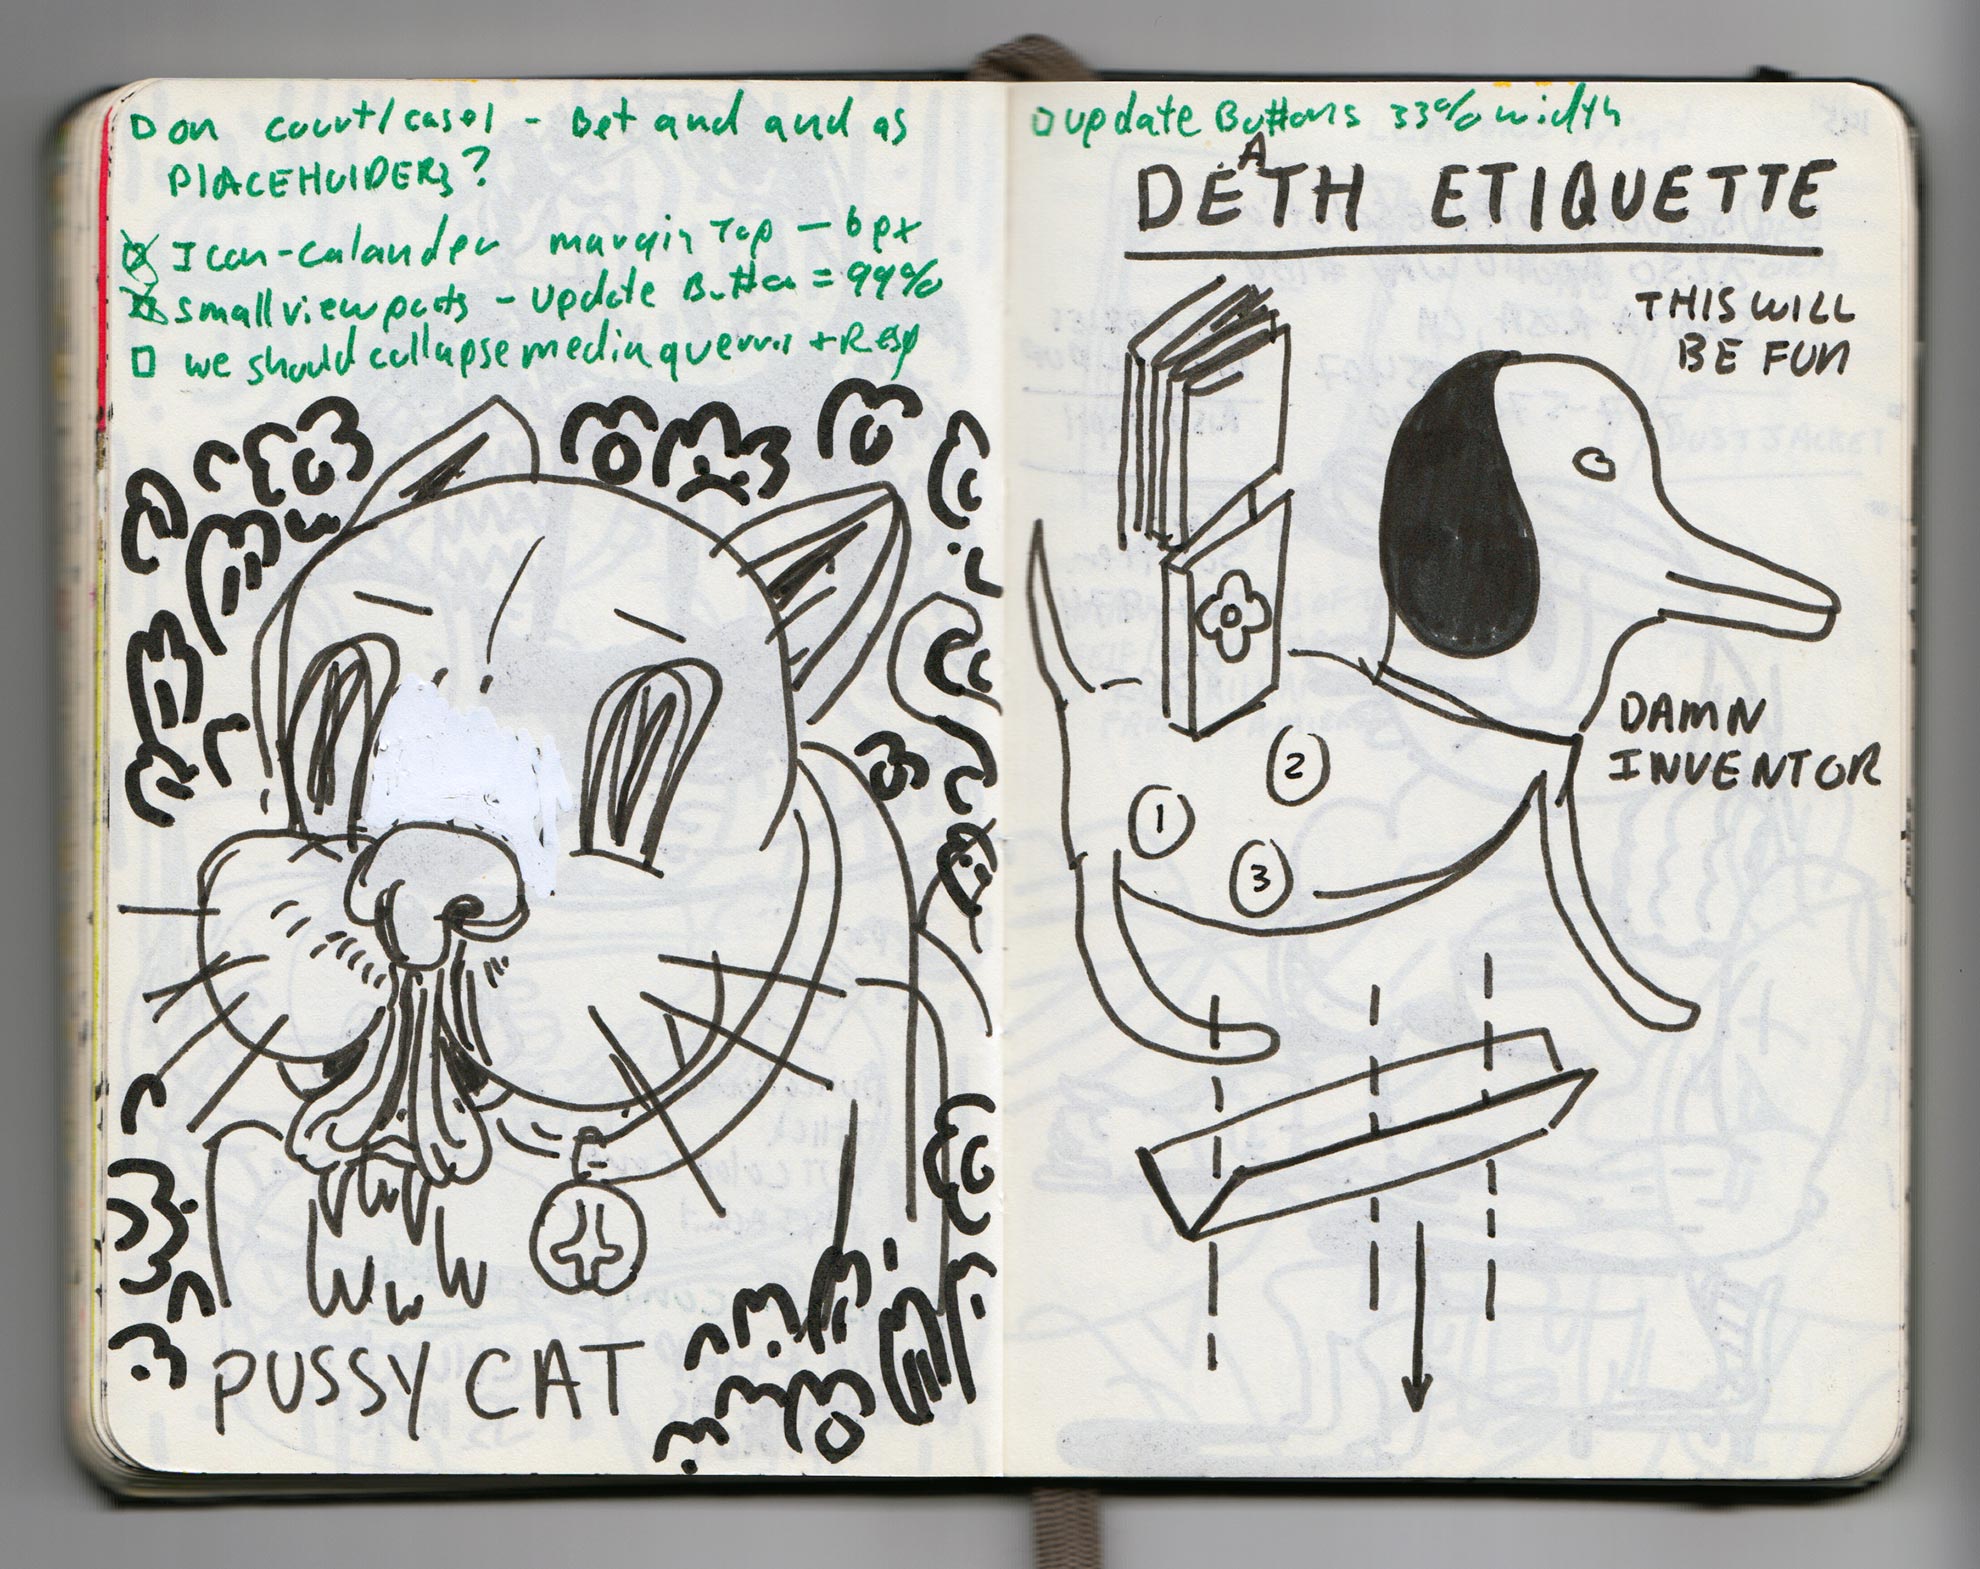 on count/case1 - Bet and and as
PlACEHOlDERs?
Icon-calander margin Top - 6px
small viewports - update Button = 99%
we should collapse media querris + Resp
WwW
PUSSY CAT
update Buttons 33% width
DEATH ETIQUETTE
THIS WILL
BE FUN
DAMN
INVENTOR
1
2
3